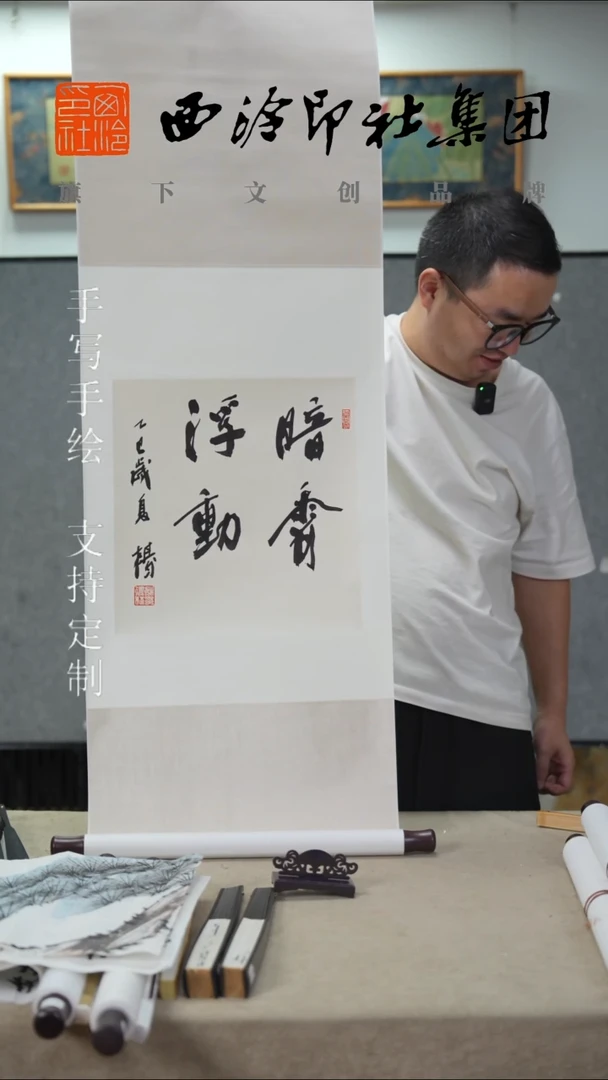 西泠印社
西泠印社集团
旗下文创品牌
手写手绘 支持定制
暗香
浮動
乙巳歲夏 楊